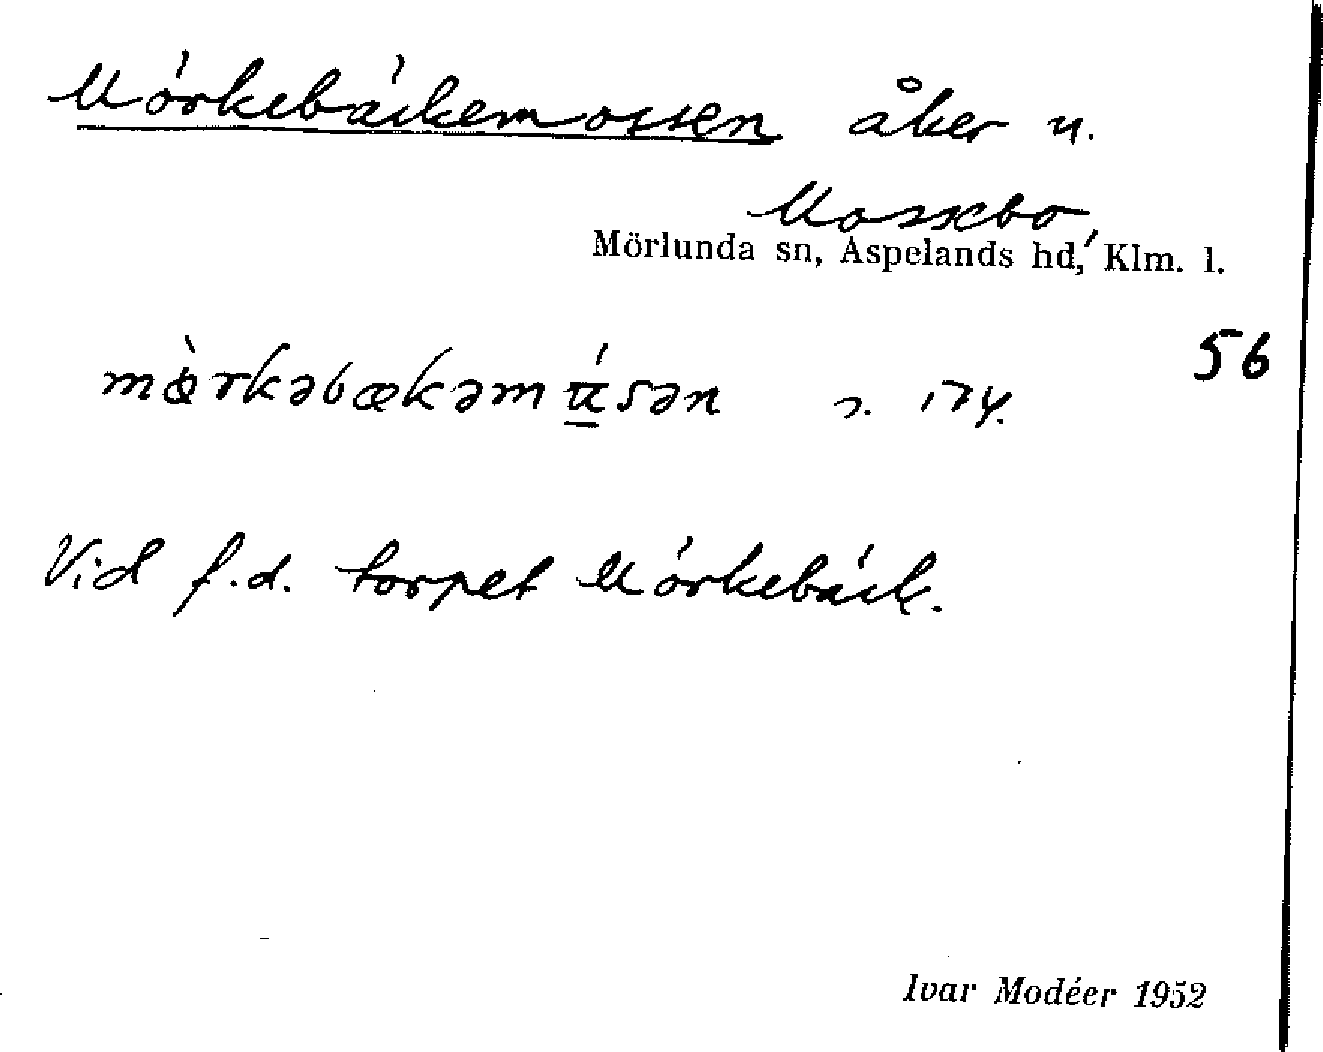 Mörkebäckemossen åker n.
Mossebo,
Mörlunda sn, Aspelands hd, Klm. l.
56
Vid f.d. torpet Mörkebäck.
Ivar Modéer 1952